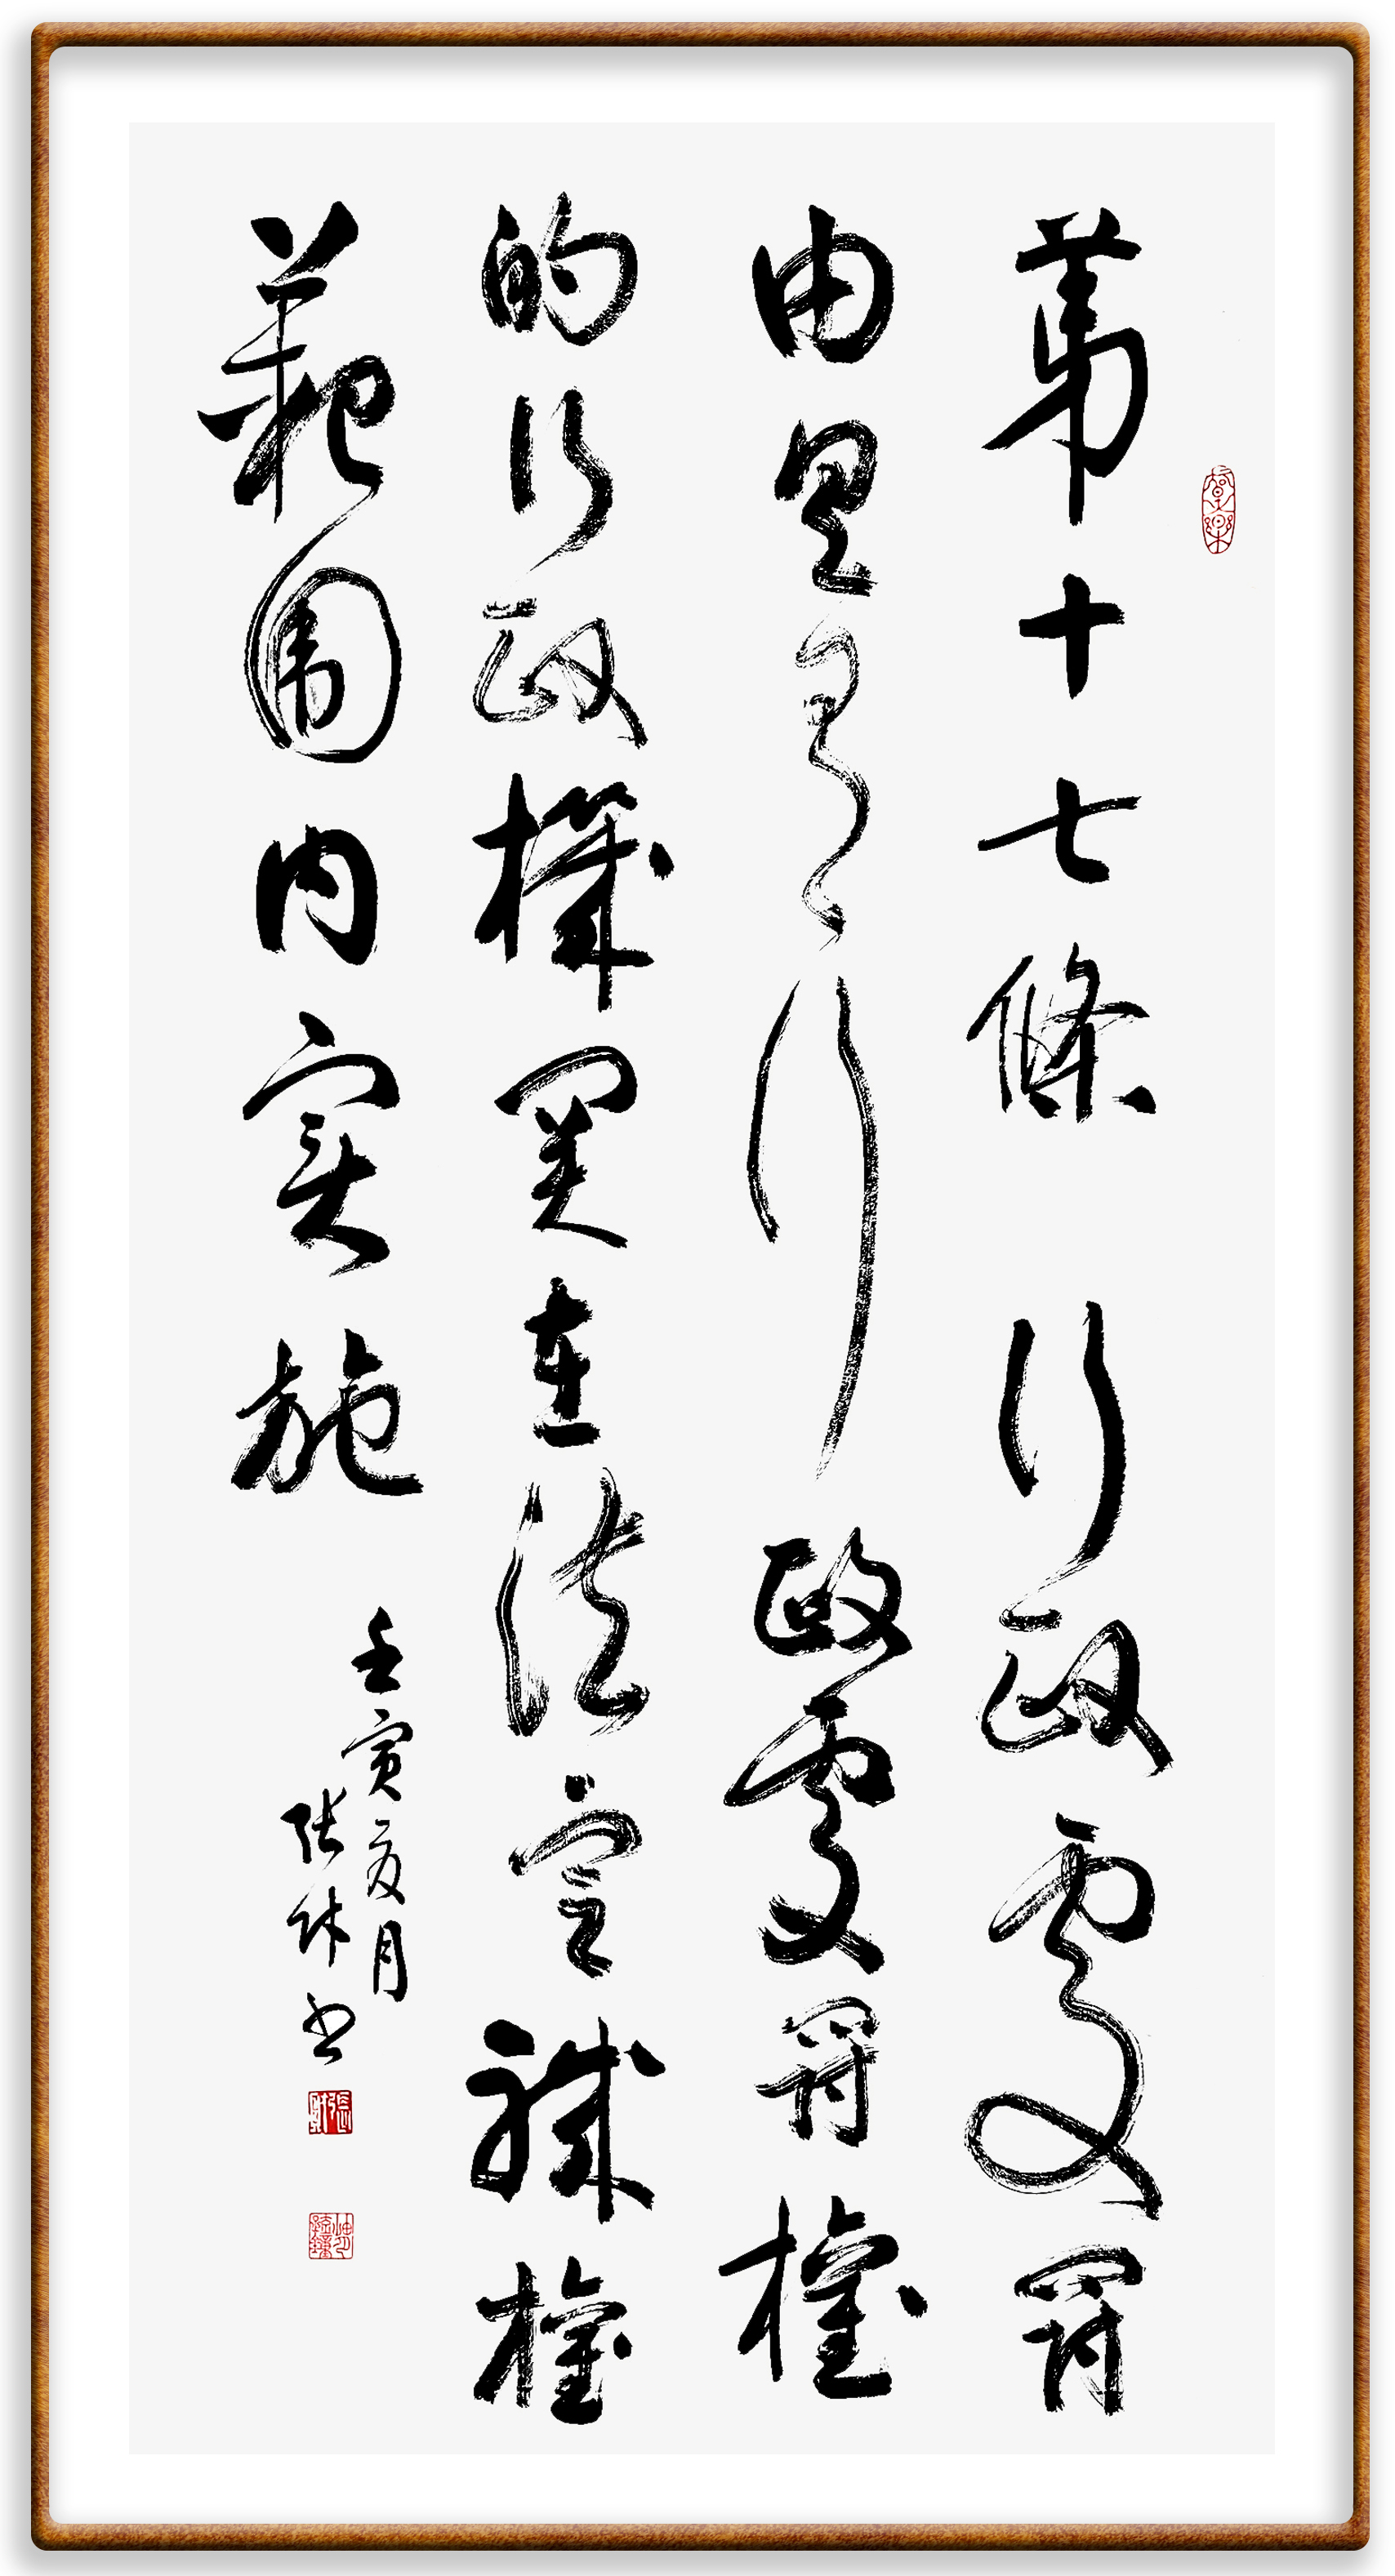 第十七條 行政處罰
由具有行政處罰權
的行政機關在法定職權
範圍内實施
壬寅夏月
張書